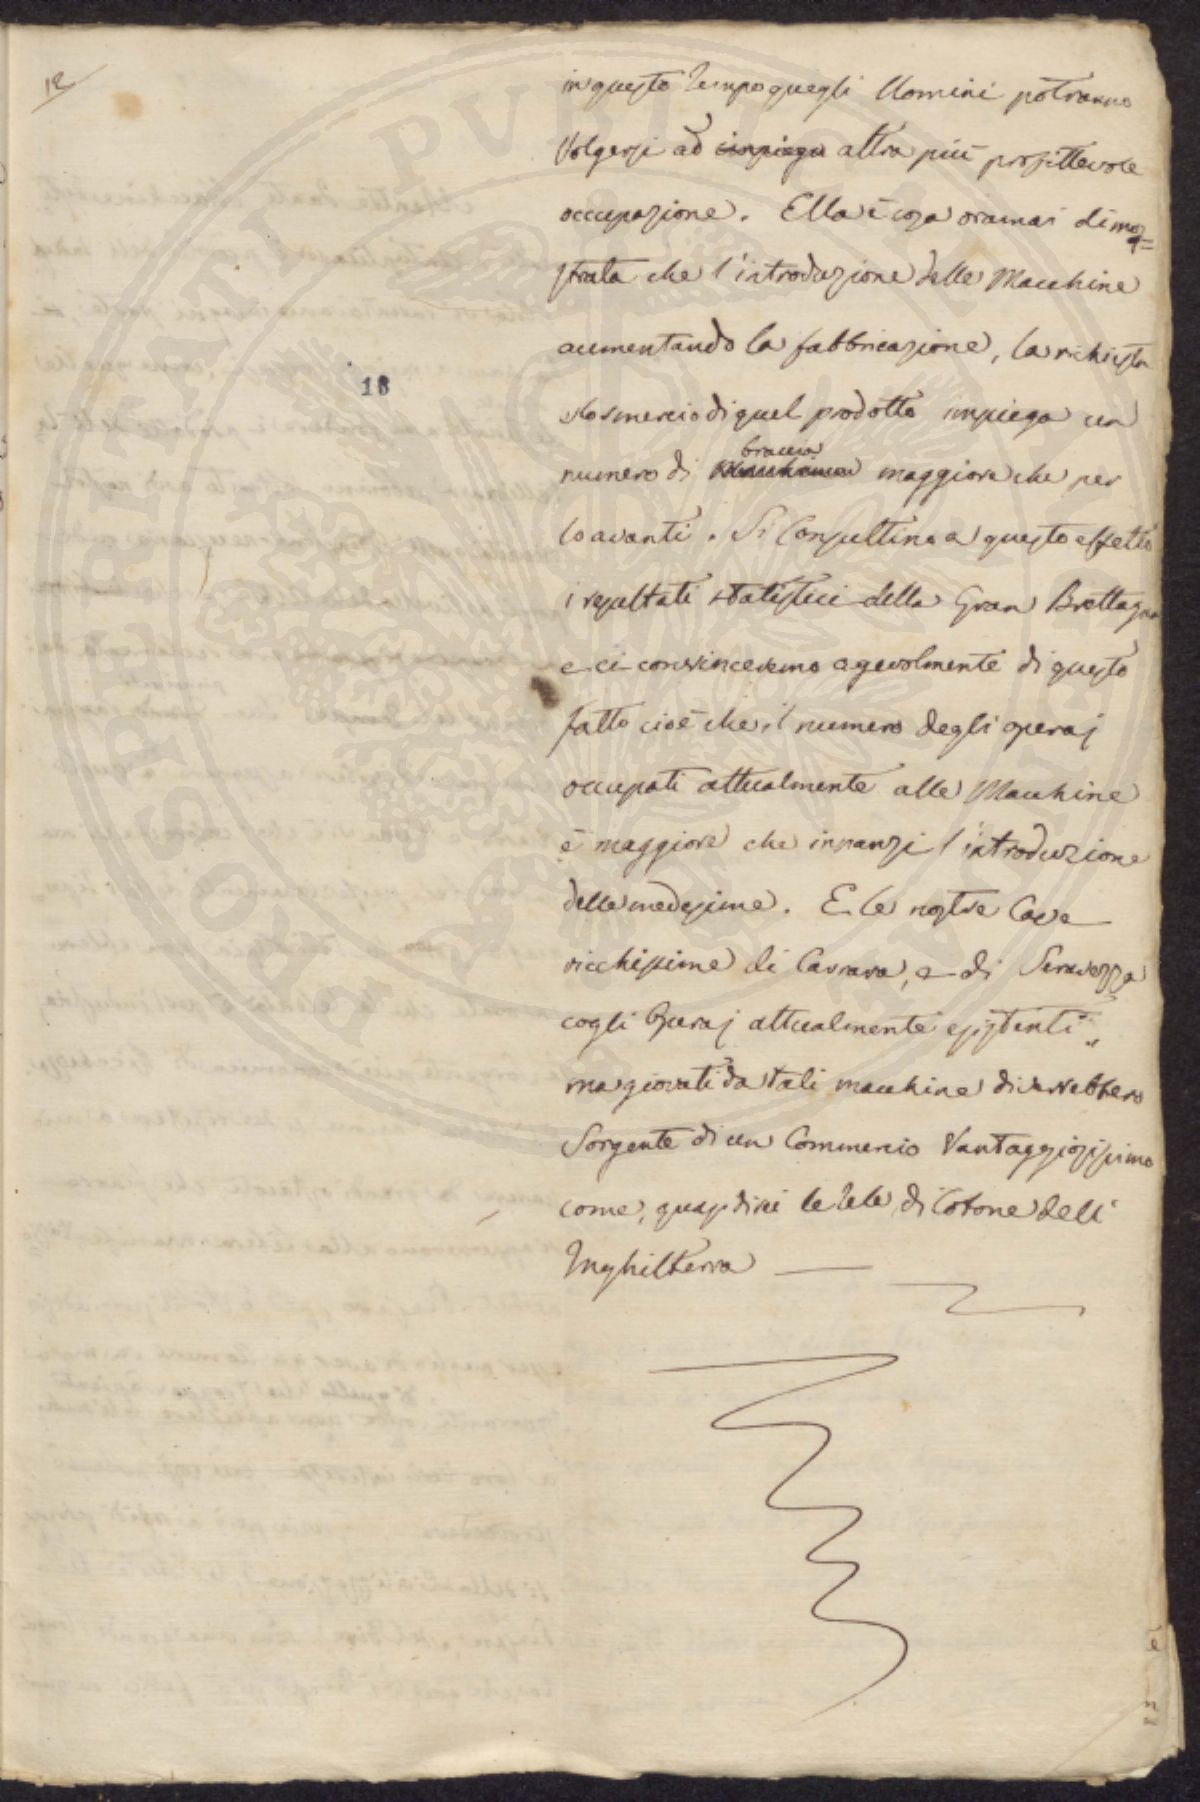 12
18
in questo tempo quegli Uomini potranno
Volgersi ad impiego altra più profittevole
occupazione. Ella è cosa oramai dimos=
strata che l'introduzione delle Macchine
aumentando la fabbricazione, la richiesta
e lo smercio di quel prodotto impiega un
braccia
numero di maggiore che per
lo avanti. Si Consultino a questo effetto
i resultati statistici della Gran Brettagna
e ci convinceremo agevolmente di questo
fatto cioè che il numero degli operaj
occupati attualmente alle Macchine
è maggiore che innanzi l'introduzione
delle medesime. E le nostre Cave
ricchissime di Carrara, e di Seravezza
cogli Operaj attualmente esistenti
ma giovati da tali macchine diverrebbero
Sorgente di un Commercio Vantaggiosissimo
come, quasi direi le tele di Cotone dell'
Inghilterra
PROSPERITATI PUBLICAE AUGENDAE